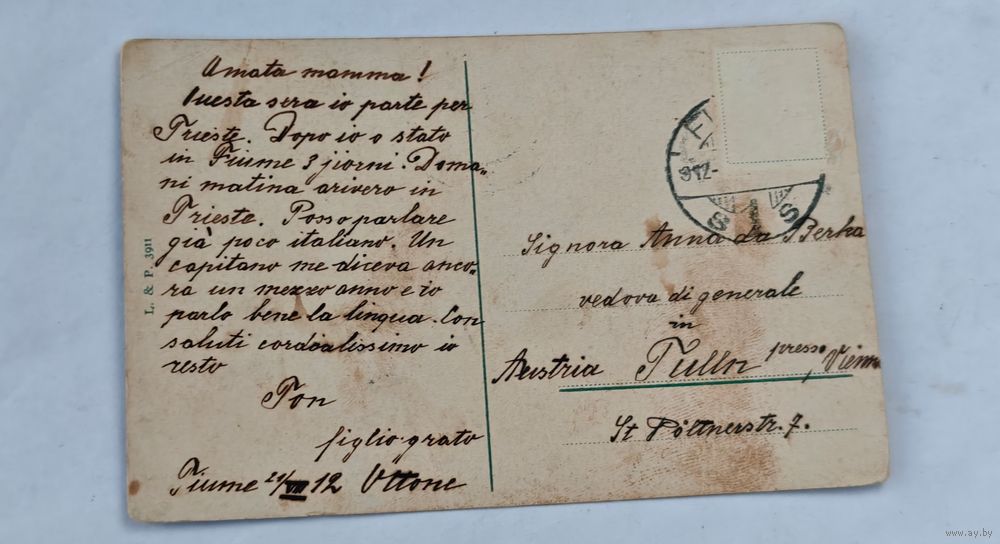 Amata mamma!
Questa sera io parte per
Trieste. Dopo io o stato
in Fiume 3 jiorni. Doma-
ni matina arivero in
Trieste. Posso parlare
già poco italiano. Un
capitano me diceva anco-
ra un mezzo anno e io
parlo bene la lingua. Con
saluti cordialissimo io
resto
Ton
figlio grato
Fiume 12 Ottone
L. & P. 3911
FI
912-
S S
Signora Anna da Berka
vedova di generale
in
Austria Tulln presso Vienna
St Pöltnerstr. 7.
www.ay.by